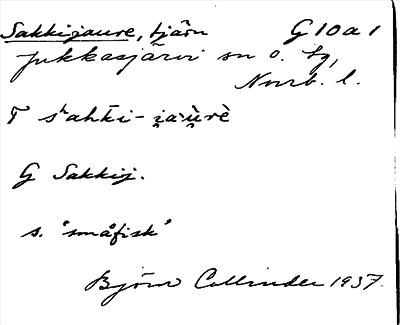 Sakkijaure, tjärn G10a1
Jukkasjärvi sn o. lg,
Norrb. l.
T sʰahk̄i-i̯a·u̯rè
G Sakkij.
s. "småfisk"
Björn Collinder 1937.